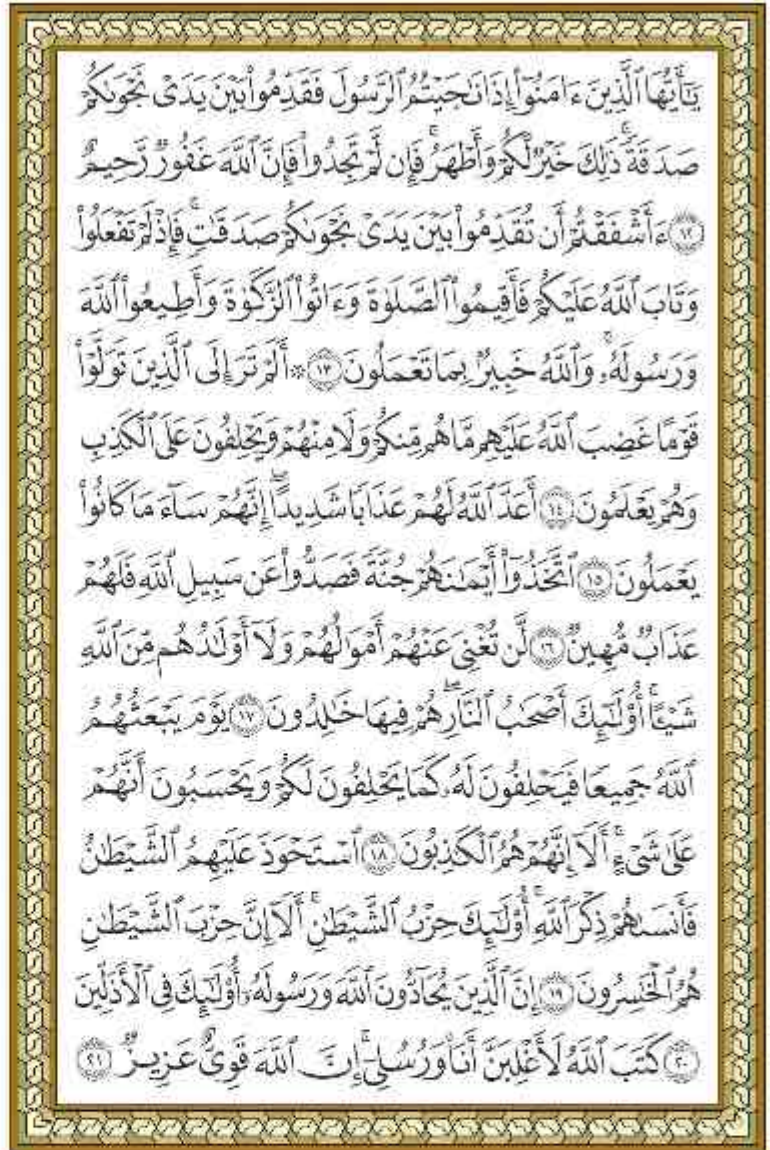 يَـٰٓأَيُّهَا ٱلَّذِينَ ءَامَنُوٓا۟ إِذَا نَـٰجَيْتُمُ ٱلرَّسُولَ فَقَدِّمُوا۟ بَيْنَ يَدَىْ نَجْوَىٰكُمْ
صَدَقَةً ۚ ذَٰلِكَ خَيْرٌ لَّكُمْ وَأَطْهَرُ ۚ فَإِن لَّمْ تَجِدُوا۟ فَإِنَّ ٱللَّهَ غَفُورٌ رَّحِيمٌ
١٢ ءَأَشْفَقْتُمْ أَن تُقَدِّمُوا۟ بَيْنَ يَدَىْ نَجْوَىٰكُمْ صَدَقَـٰتٍ ۚ فَإِذْ لَمْ تَفْعَلُوا۟
وَتَابَ ٱللَّهُ عَلَيْكُمْ فَأَقِيمُوا۟ ٱلصَّلَوٰةَ وَءَاتُوا۟ ٱلزَّكَوٰةَ وَأَطِيعُوا۟ ٱللَّهَ
وَرَسُولَهُۥ ۚ وَٱللَّهُ خَبِيرٌۢ بِمَا تَعْمَلُونَ ١٣ ۞ أَلَمْ تَرَ إِلَى ٱلَّذِينَ تَوَلَّوْا۟
قَوْمًا غَضِبَ ٱللَّهُ عَلَيْهِم مَّا هُم مِّنكُمْ وَلَا مِنْهُمْ وَيَحْلِفُونَ عَلَى ٱلْكَذِبِ
وَهُمْ يَعْلَمُونَ ١٤ أَعَدَّ ٱللَّهُ لَهُمْ عَذَابًا شَدِيدًا ۖ إِنَّهُمْ سَآءَ مَا كَانُوا۟
يَعْمَلُونَ ١٥ ٱتَّخَذُوٓا۟ أَيْمَـٰنَهُمْ جُنَّةً فَصَدُّوا۟ عَن سَبِيلِ ٱللَّهِ فَلَهُمْ
عَذَابٌ مُّهِينٌ ١٦ لَّن تُغْنِىَ عَنْهُمْ أَمْوَٰلُهُمْ وَلَآ أَوْلَـٰدُهُم مِّنَ ٱللَّهِ
شَيْـًٔا ۚ أُو۟لَـٰٓئِكَ أَصْحَـٰبُ ٱلنَّارِ ۖ هُمْ فِيهَا خَـٰلِدُونَ ١٧ يَوْمَ يَبْعَثُهُمُ
ٱللَّهُ جَمِيعًا فَيَحْلِفُونَ لَهُۥ كَمَا يَحْلِفُونَ لَكُمْ ۖ وَيَحْسَبُونَ أَنَّهُمْ
عَلَىٰ شَىْءٍ ۚ أَلَآ إِنَّهُمْ هُمُ ٱلْكَـٰذِبُونَ ١٨ ٱسْتَحْوَذَ عَلَيْهِمُ ٱلشَّيْطَـٰنُ
فَأَنسَىٰهُمْ ذِكْرَ ٱللَّهِ ۚ أُو۟لَـٰٓئِكَ حِزْبُ ٱلشَّيْطَـٰنِ ۚ أَلَآ إِنَّ حِزْبَ ٱلشَّيْطَـٰنِ
هُمُ ٱلْخَـٰسِرُونَ ١٩ إِنَّ ٱلَّذِينَ يُحَآدُّونَ ٱللَّهَ وَرَسُولَهُۥٓ أُو۟لَـٰٓئِكَ فِى ٱلْأَذَلِّينَ
٢٠ كَتَبَ ٱللَّهُ لَأَغْلِبَنَّ أَنَا۠ وَرُسُلِىٓ ۚ إِنَّ ٱللَّهَ قَوِىٌّ عَزِيزٌ ٢١